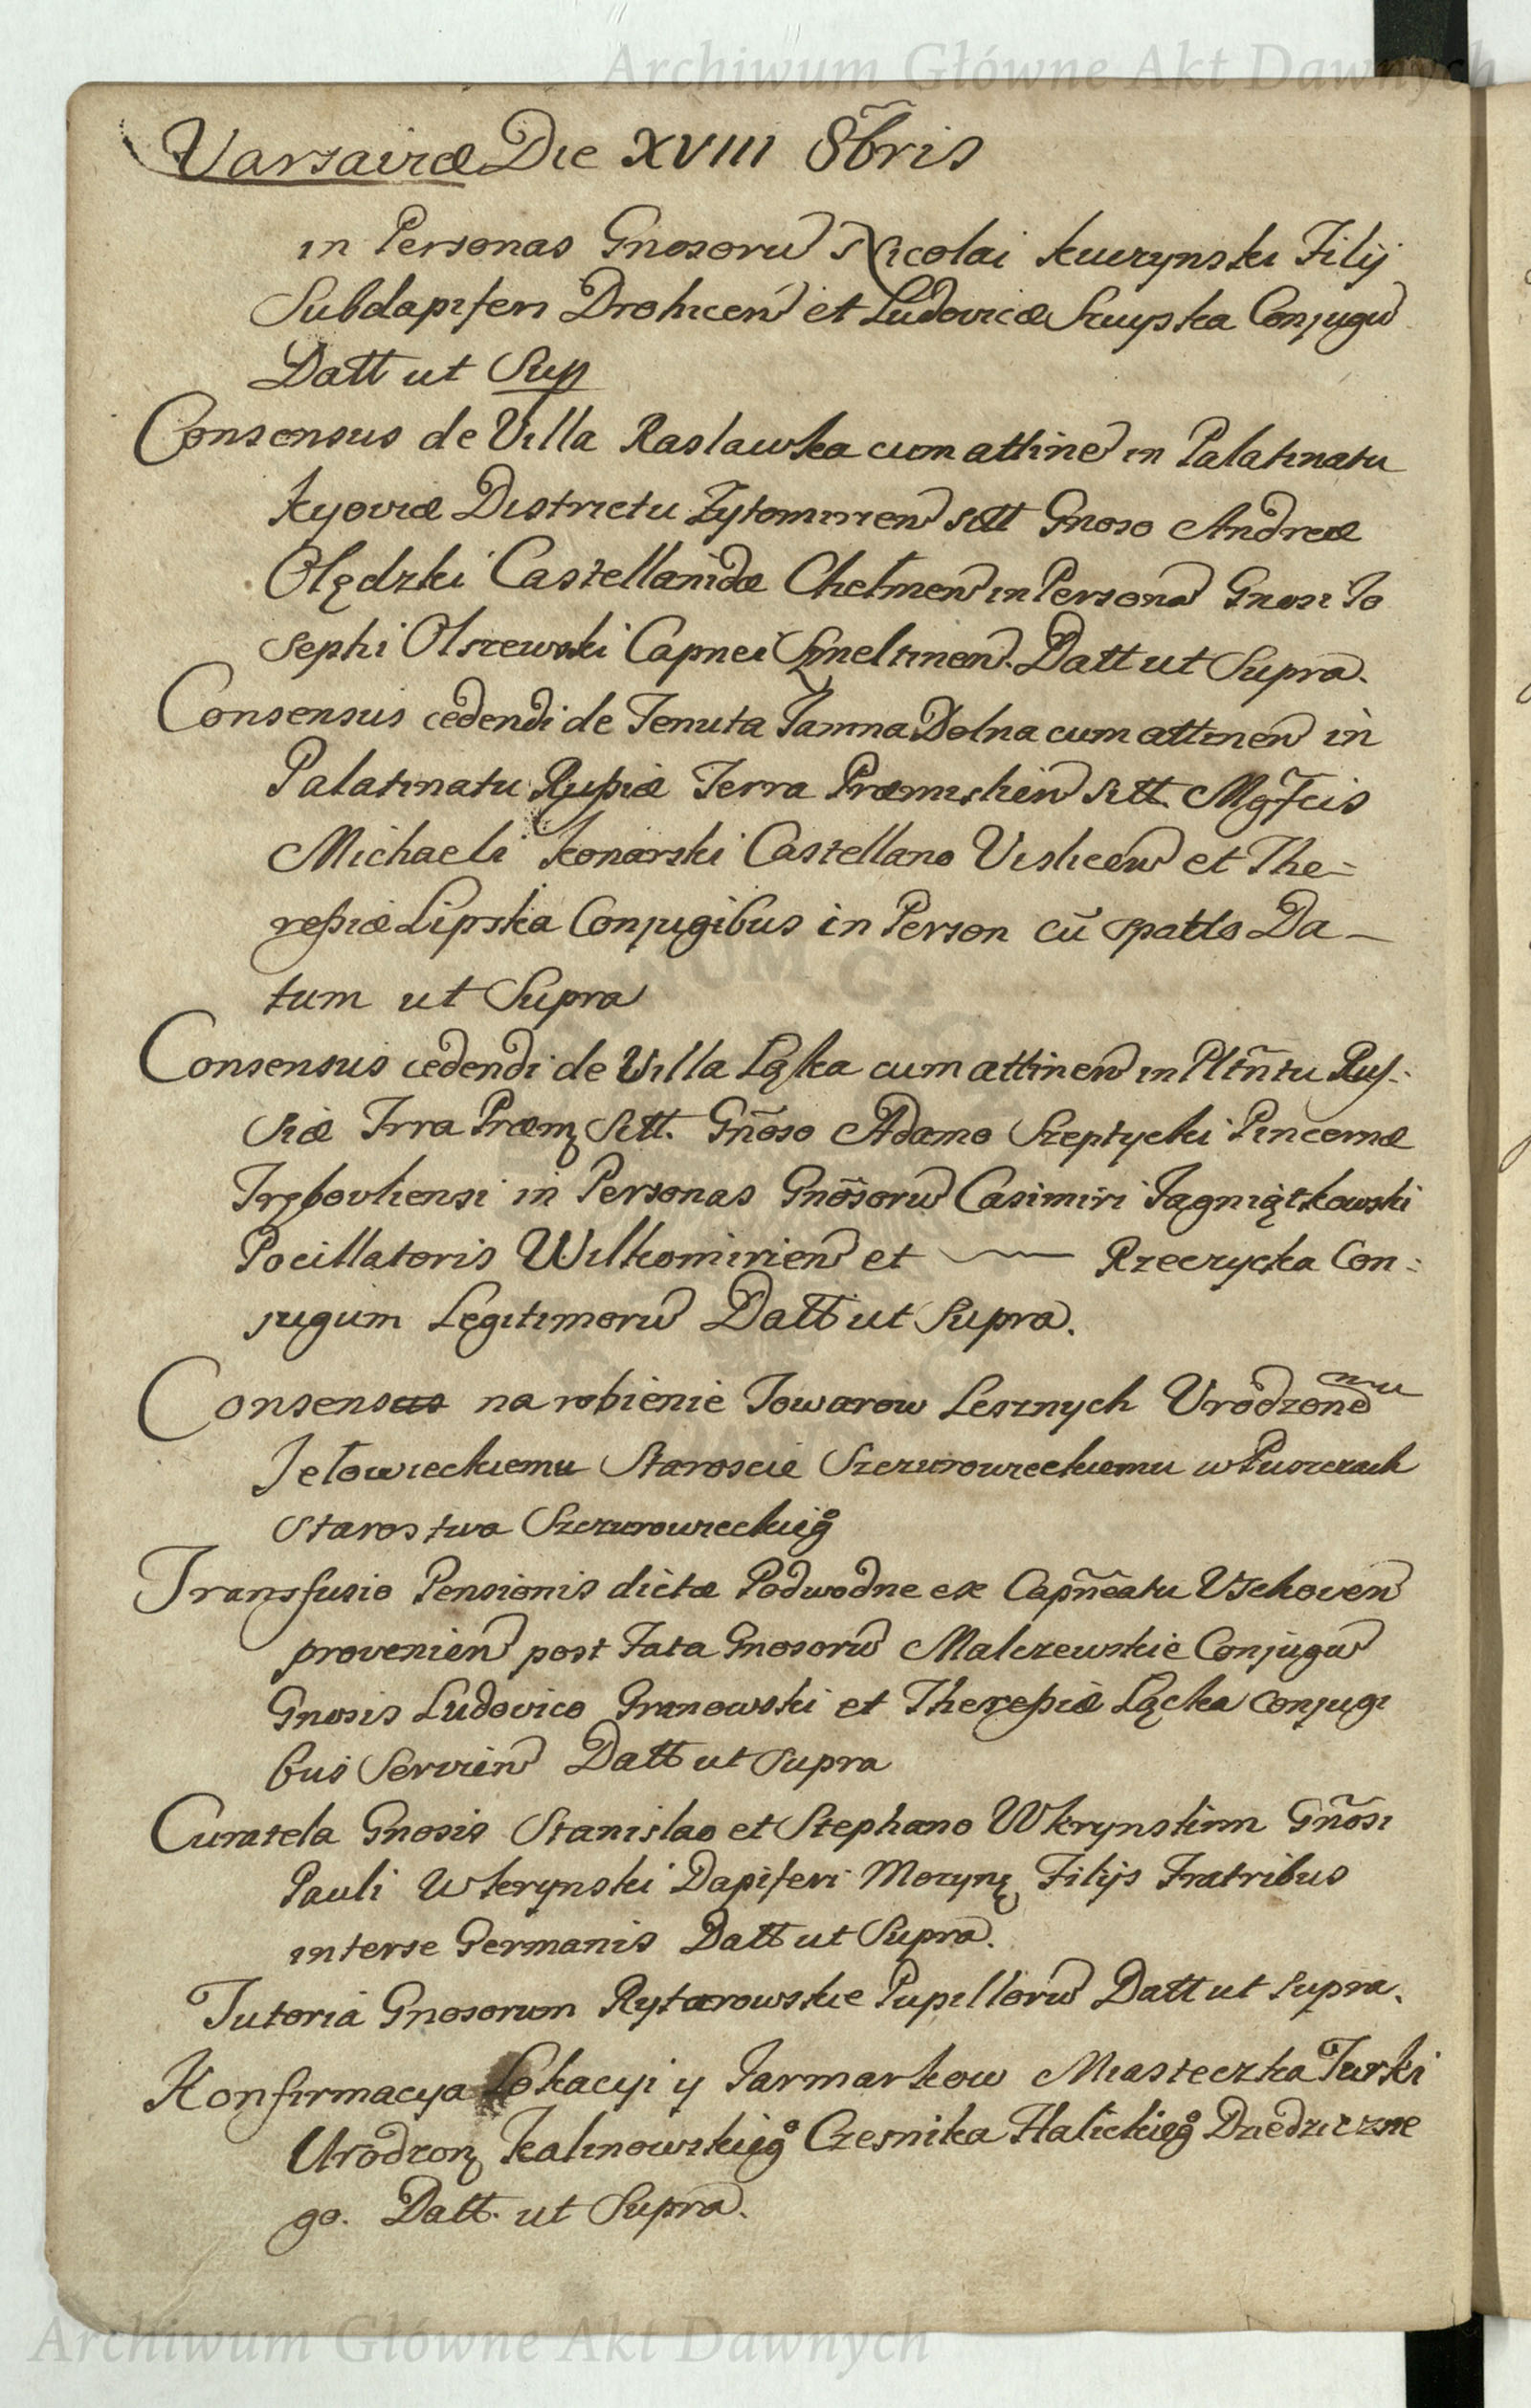 Archiwum Główne Akt Dawnych
Varsaviæ Die XVIII 8bris
in Personas Gnosorũ Nicolai Kuczynski Filij
Subdapiferi Drohicen et Ludovicæ Conjugũ
Datt ut Sup
Consensus de Villa Raslawka cum attinen in Palatinatu
Kyoviæ Districtu Zytomirien Sett Gnoso Andreæ
Olędzki Castellanidæ Chełmen in Persona Gnosi Jo
sephi Olszewski Capnei Szmeltinen. Datt ut Supra.
Consensus cedendi de Tenuta Jamna Dolna cum attinen in
Palatinatu Rußiæ Terra Præmislien Sett. Mgfcis
Michaeli Konarski Castellano Vislicen et The=
reßiæ Lipska Conjugibus in Person cũ spatło Da-
tum ut Supra
Consensus cedendi de Villa Łąka cum attinen in Pltñtu Rus:
siæ Trra Præm Sett. Gñoso Adamo Szeptycki Pincernæ
Trębovliensi in Personas Gnõsorũ Casimiri Jagniątkowski
Pocillatoris Wilkomirien et —— Rzeczycka Con:
jugum Legitimorũ Datt ut Supra.
Consensus na robienie Towarow Lesznych Urodzonemu
Jełowieckiemu Staroscie Szczurowieckiemu w Puszczach
Starostwa Szczurowieckieg°
Transfusio Pensionis dictæ Podwodne ex Capñeatu Vschoven
provenien post Fata Gnosorũ Malczewskie Conjugũ
Gnosis Ludovico Granowski et Thereßiæ Łącka conjugi
bus Servien Datt ut Supra
Curatela Gnosis Stanislao et Stephano Wkrynskim Gñosi
Pauli Wkrynski Dapiferi Mozyr Filijs Fratribus
interse Germanis Datt ut Supra.
Tutoria Gnosorum Rytarowskie Pupillorũ Datt ut Supra.
Konfirmacya Lokacyi y Jarmarkow Miasteczka Turki
Urodzon Kalinowskieg° Czesnika Halickieg° Dziedziczne
go. Datt. ut Supra.
Archiwum Główne Akt Dawnych